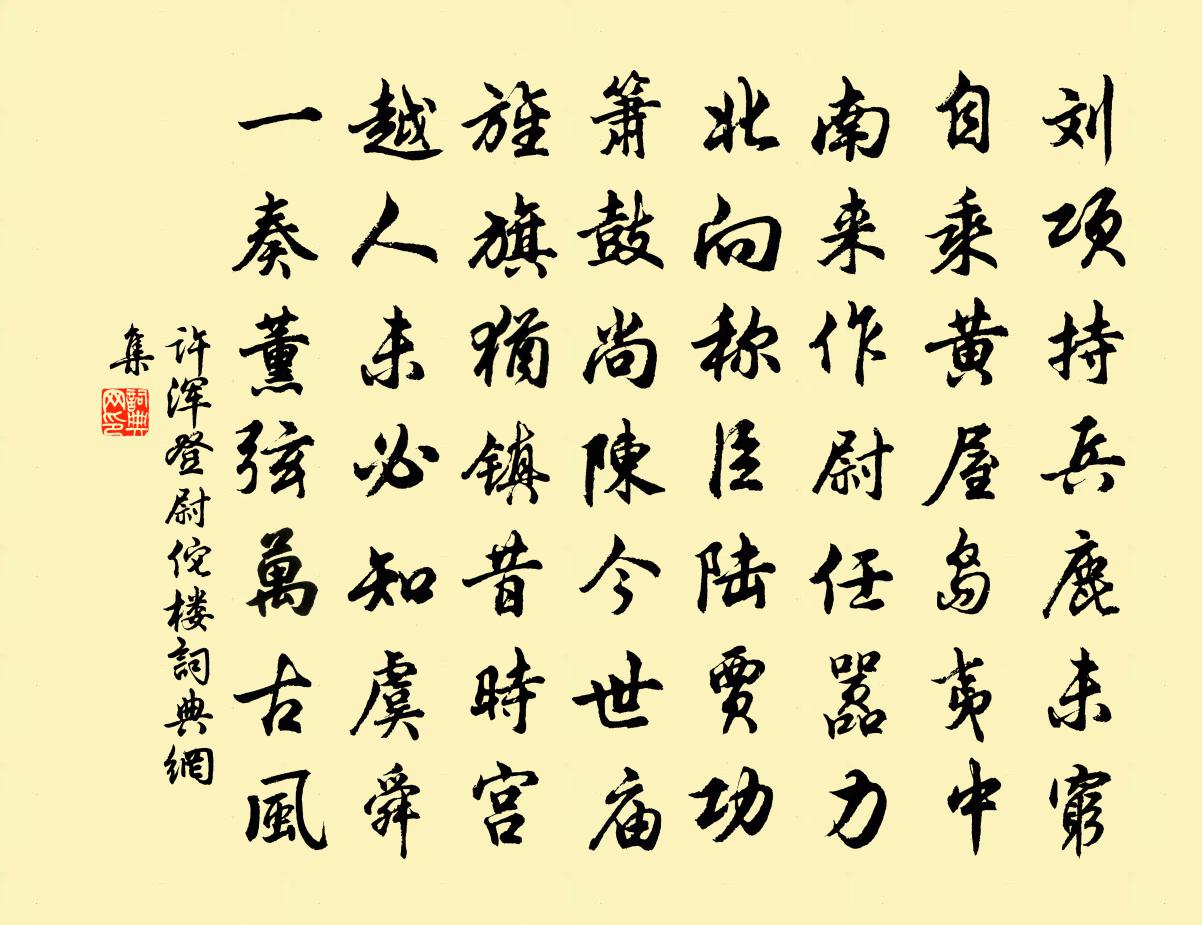 刘项持兵鹿未窮
自乘黄屋岛夷中
南来作尉任嚣力
北向称臣陆贾功
箫鼓尚陳今世庙
旌旗猶镇昔時宫
越人未必知虞舜
一奏薰弦萬古風
许浑登尉佗楼詞典網
集
詞典
网印